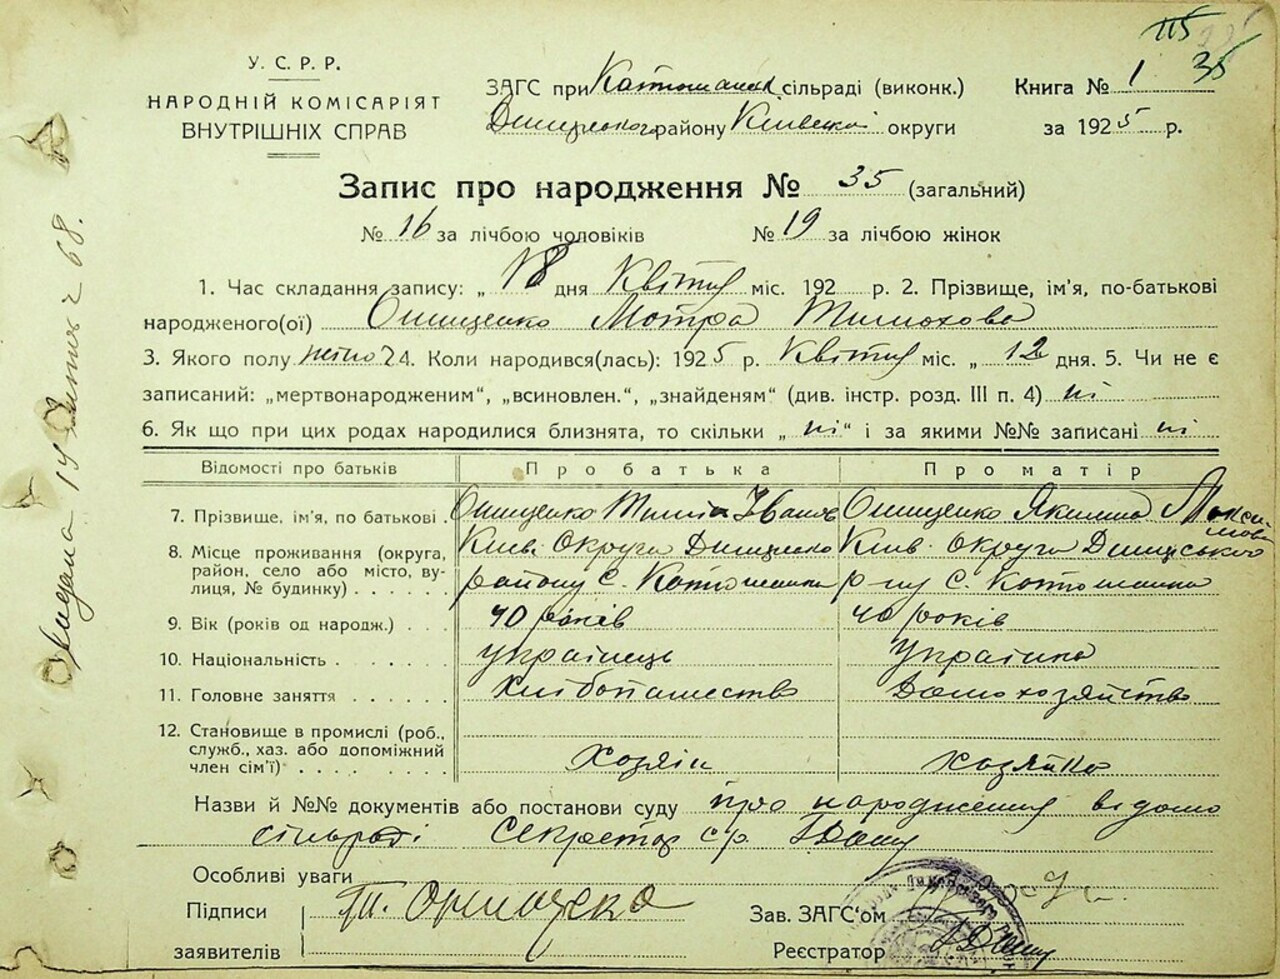 115
35
У. С. Р. Р.
НАРОДНІЙ КОМІСАРІЯТ
ВНУТРІШНІХ СПРАВ
ЗАГС при сільраді (виконк.)
району Київської округи
Книга № 1
за 1925 р.
Запис про народження № 35 (загальний)
№ 16 за лічбою чоловіків № 19 за лічбою жінок
1. Час складання запису: „ 18 дня Квітня міс. 192 р. 2. Прізвище, ім'я, по-батькові
народженого(ої) Онищенко Мотра Тимохова
3. Якого полу жіно 4. Коли народився(лась): 1925 р. Квітня міс. „ 12 дня. 5. Чи не є
записаний: „мертвонародженим“, „всиновлен.“, „знайденям“ (див. інстр. розд. III п. 4) ні
6. Як що при цих родах народилися близнята, то скільки „ ні “ і за якими №№ записані ні
Відомості про батьків Про батька Про матір
7. Прізвище, ім'я, по батькові . Онищенко Іванов Онищенко Якилина Макси-
мова
8. Місце проживання (округа, Київ. Округа Київ. округа
район, село або місто, ву- району С. р-ну С.
лиця, № будинку) . . . . . .
9. Вік (років од народж.) . . . 40 років 40 років
10. Національність . . . . . . . українець Українка
11. Головне заняття . . . . . . Хлібопашество Домохозяйство
12. Становище в промислі (роб.,
служб., хаз. або допоміжний
член сім'ї) . . . . . . . . . . Хозяін хозяйка
Назви й №№ документів або постанови суду про народження відомо
сільраді Секретар с/р.
Особливі уваги
Підписи Т. Онищенко
заявителів
Зав. ЗАГС'ом
Реєстратор